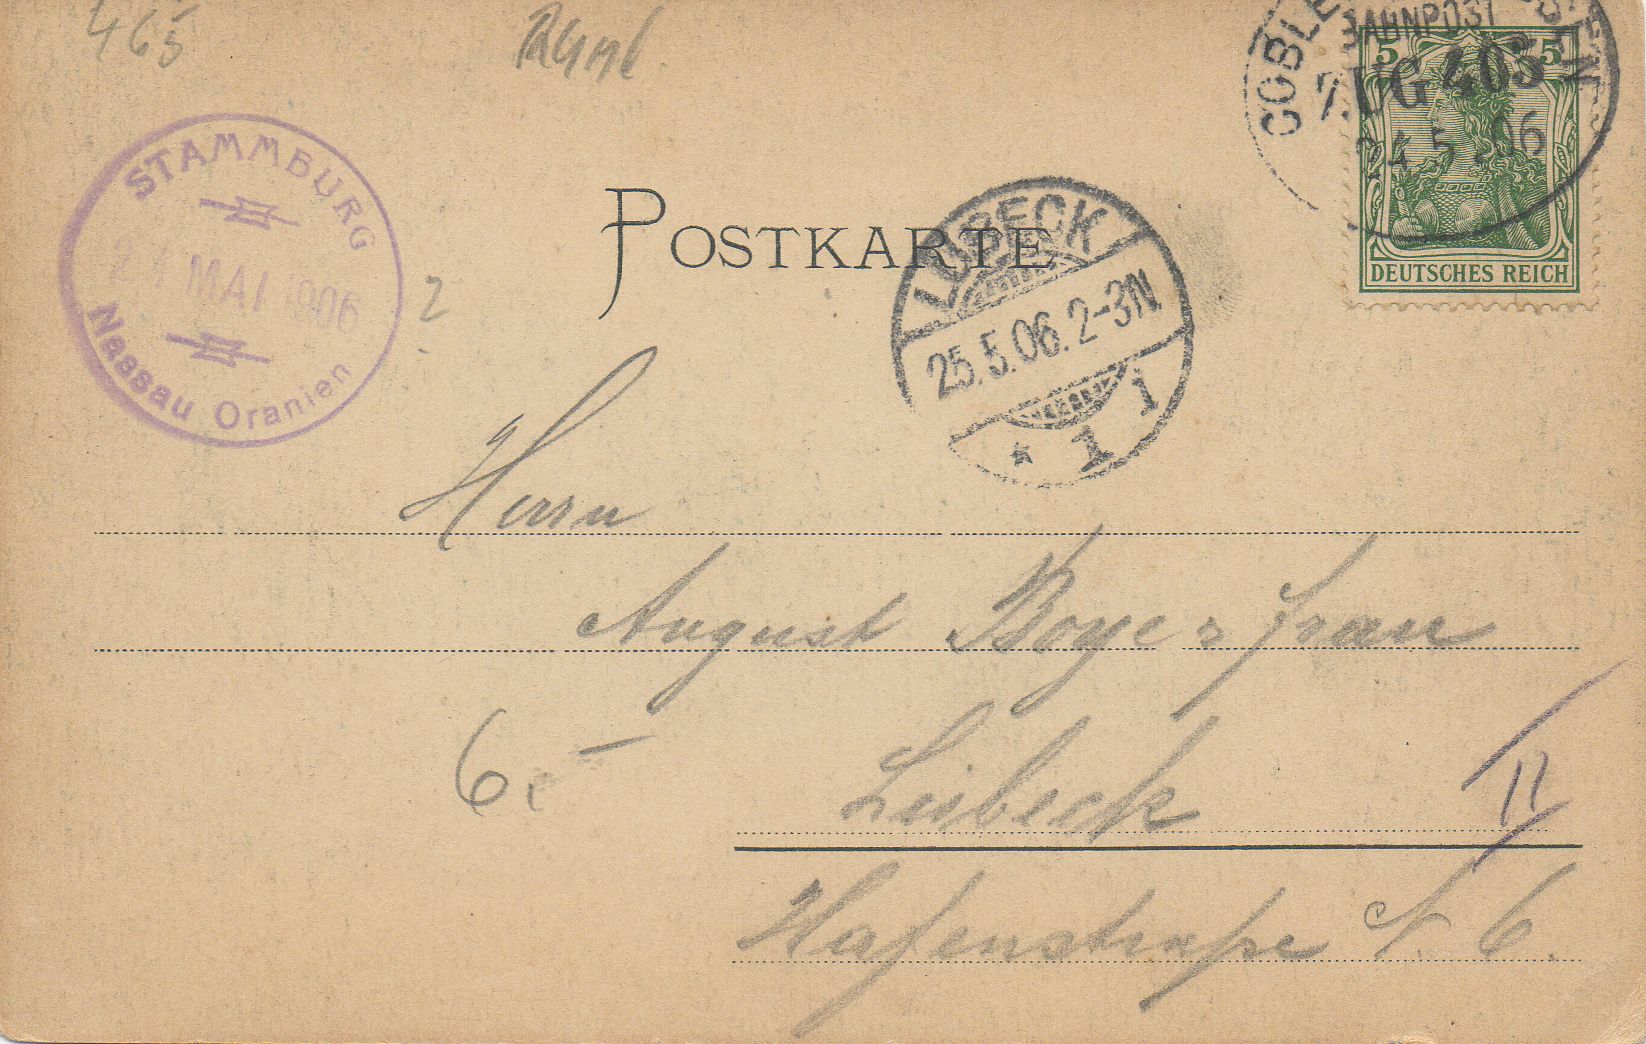 465
COBLE
BAHNPOST
ZUG 403
24.5.06
5 5
DEUTSCHES REICH
STAMMBURG
24 MAI 1906
Nassau Oranien
2
POSTKARTE
LÜBECK
25.5.06.2-3N
* 1 1
Herrn
August Boye = Frau
Lübeck
6.-
II
Hafenstraße N. 6.